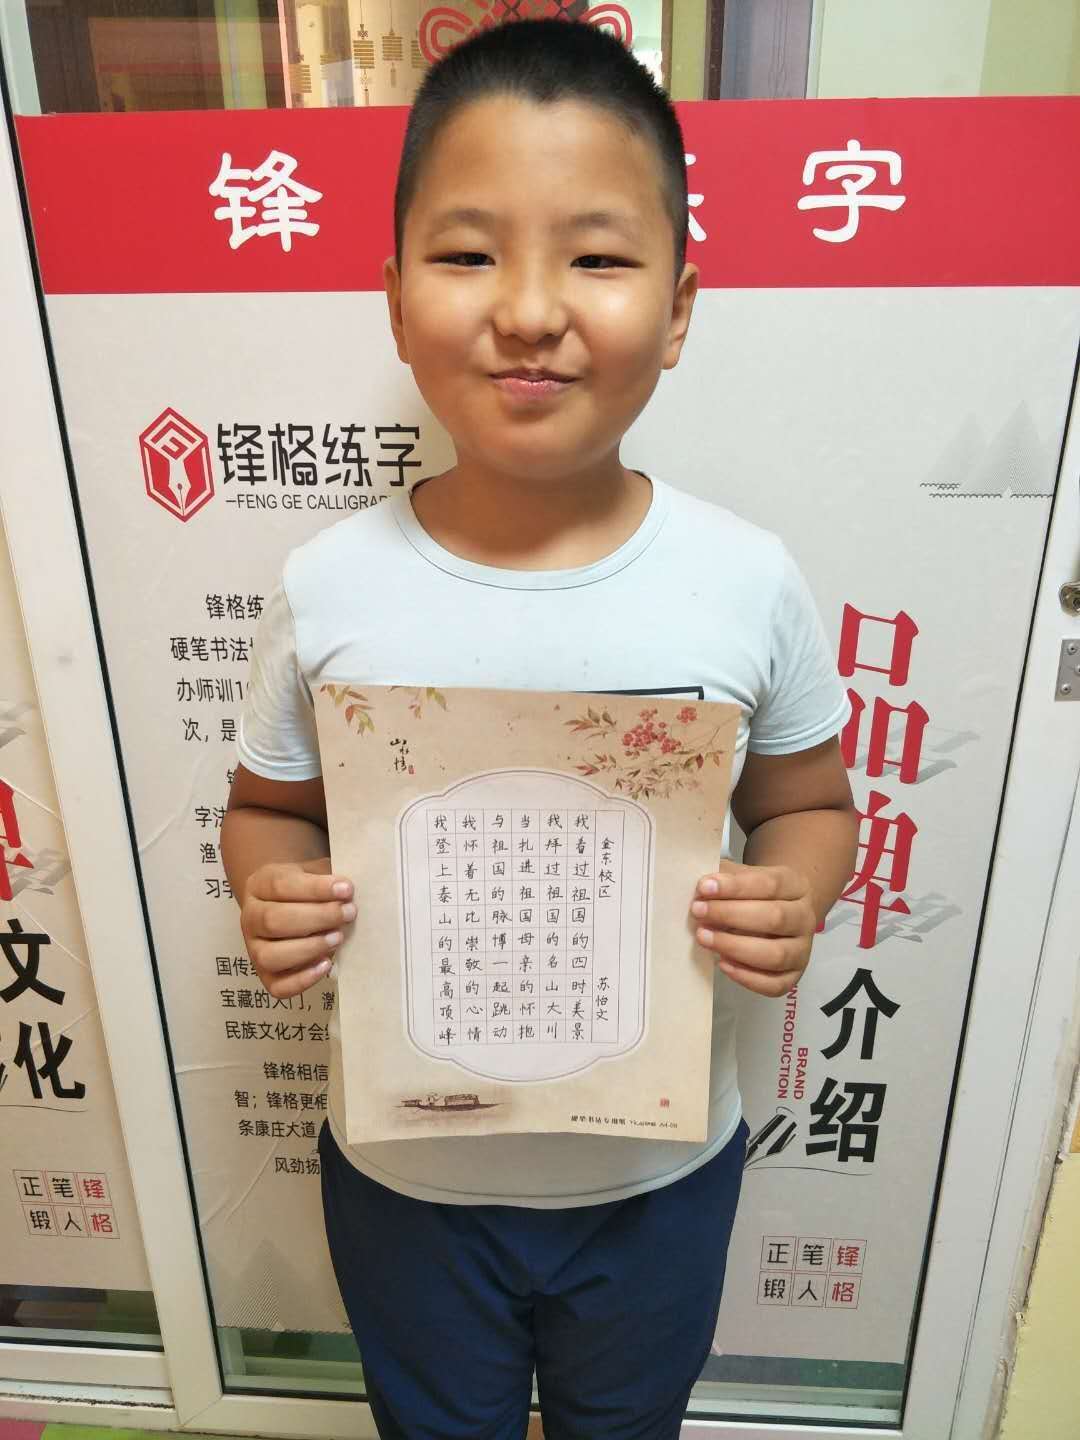 锋
字
锋格练字
FENG GE CALLIGRA
锋格练
硬笔书法
办师训1
次，是
字法
习字
国传
宝藏的大门，激
民族文化才会
锋格相信
智；锋格更相
条康庄大道
风劲扬
正笔锋
锻人格
品牌介绍
BRAND
INTRODUCTION
正笔锋
锻人格
文
化
金东校区 苏怡文
我看过祖国的四时美景
我拜过祖国的名山大川
当扎进祖国母亲的怀抱
与祖国的脉博一起跳动
我怀着无比崇敬的心情
我登上泰山的最高顶峰
硬笔书法专用纸